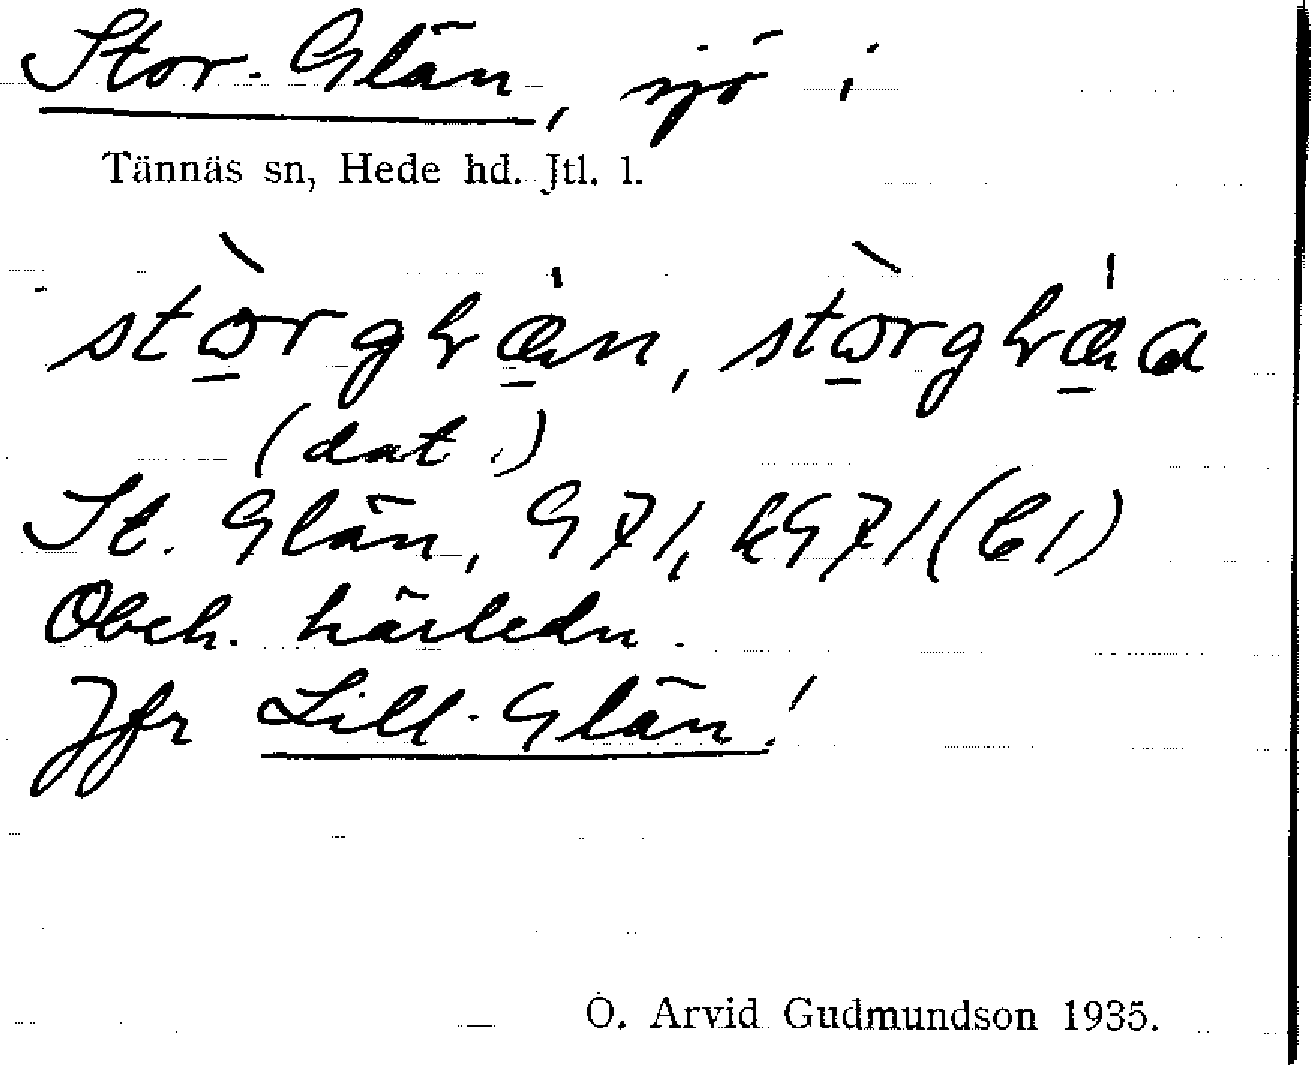 Stor-Glän, sjö i
Tännäs sn, Hede hd. Jtl. l.
(dat.)
St. Glän, G71, kG71 (C1)
Obeh. härledn.
Jfr Lill-Glän!
O. Arvid Gudmundson 1935.